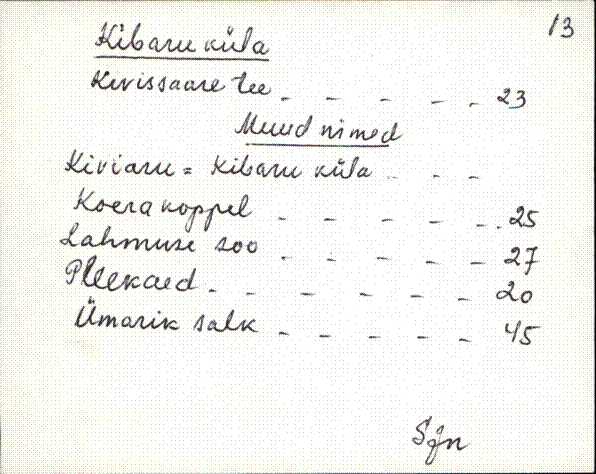 13
Kibaru küla
Kivissaare tee - - - - - 23
Muud nimed
Kiviaru = Kibaru küla - - -
Koera koppel - - - - - 25
Lahmuse soo - - - - - 27
Pleekaed - - - - - - 20
Ümarik salk - - - - - 45
Sjn